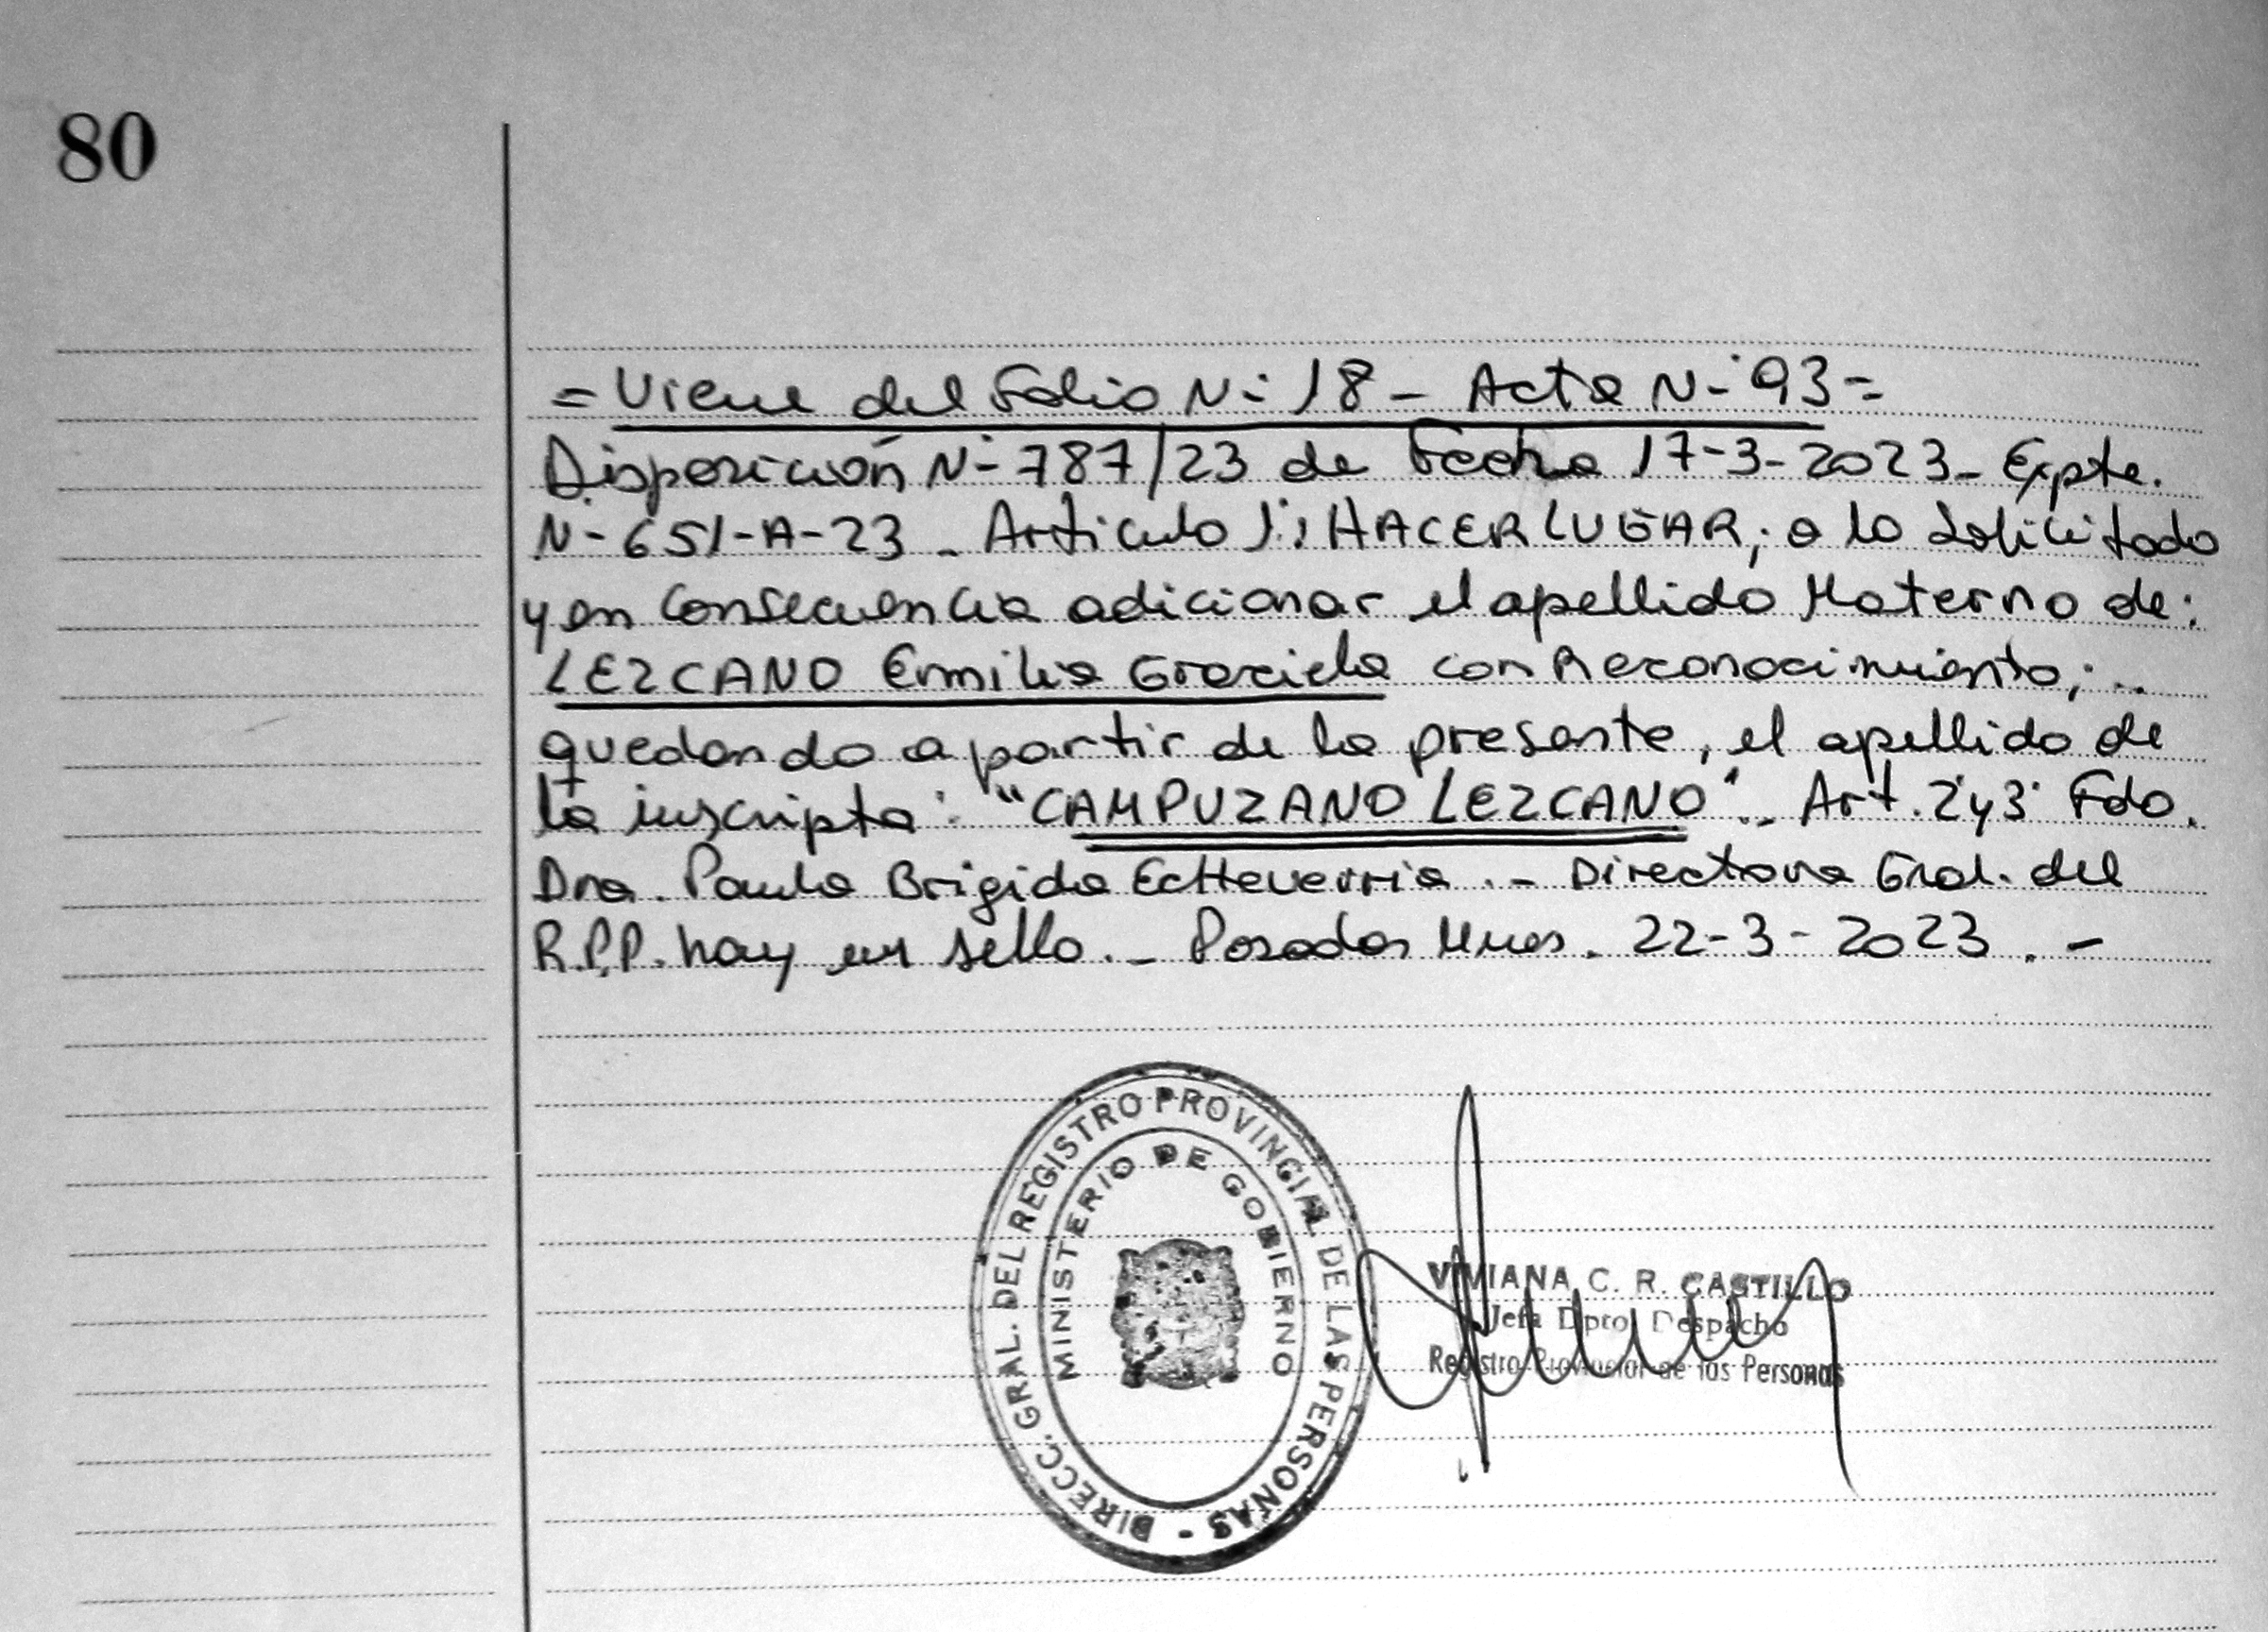 80
= Viene del Folio N-° 18 - Acta N-° 93 =
Disposición N-° 787/23 de Fecha 17-3-2023_ Expte.
N- 651-A-23 _ Articulo 1°; HACER LUGAR; a lo Solicitado
y en Consecuencia adicionar el apellido Materno de:
LEZCANO Ermilia Graciela con Reconocimiento; ..
quedando a partir de la presente, el apellido de
la inscripta: "CAMPUZANO LEZCANO"._ Art. 2°y3° Fdo.
Dra. Paula Brigida Echeverria ._ Directora Gral. del
R.P.P. hay un sello._ Posadas Mnes. 22-3-2023 . -
DIRECC. GRAL. DEL REGISTRO PROVINCIAL DE LAS PERSONAS -
MINISTERIO DE GOBIERNO
VIVIANA C. R. CASTILLO
Jefa Dpto. Despacho
Registro Provincial de las Personas